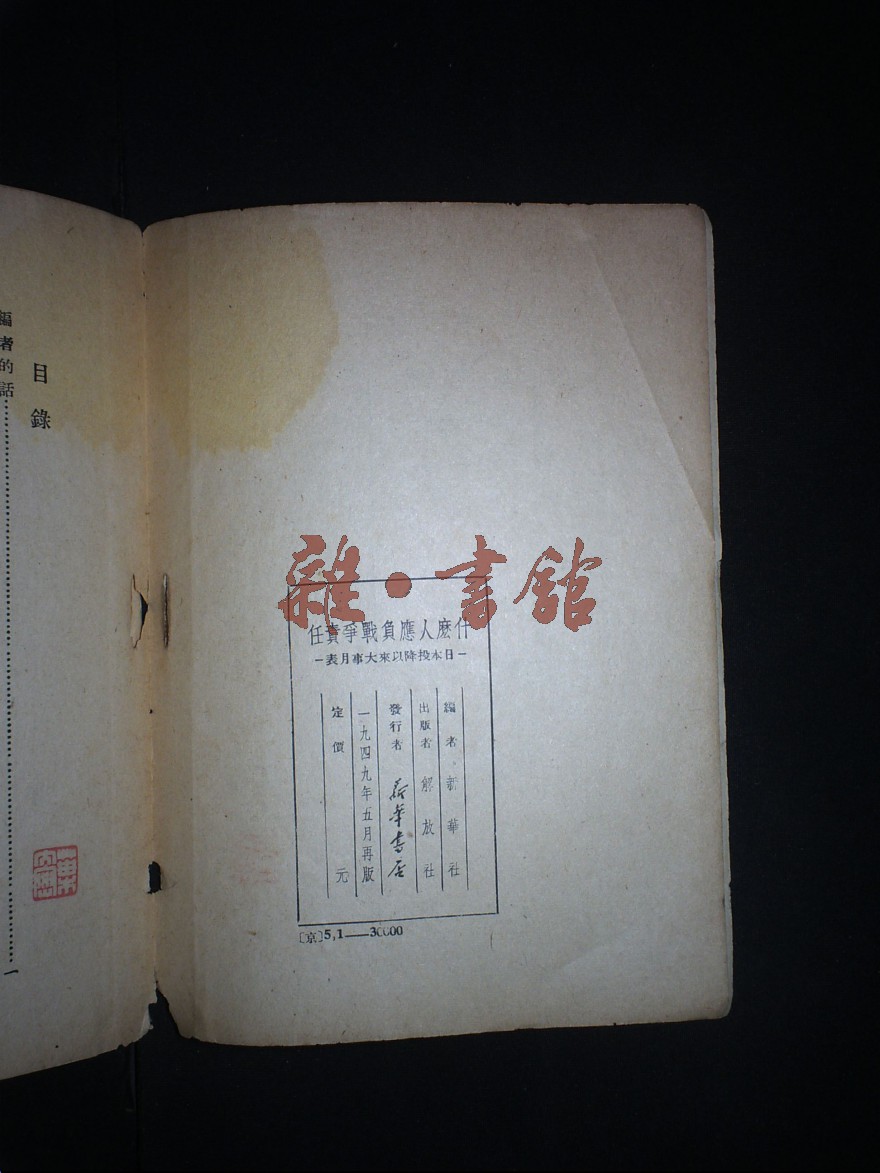 雜·書舘
任責爭戰負應人麽什
—表月事大來以降投本日—
編者 新華社
出版者 解放社
發行者 新華書店
一九四九年五月再版
定價 元
〔京〕5,1——30000
目錄
編者的話………一